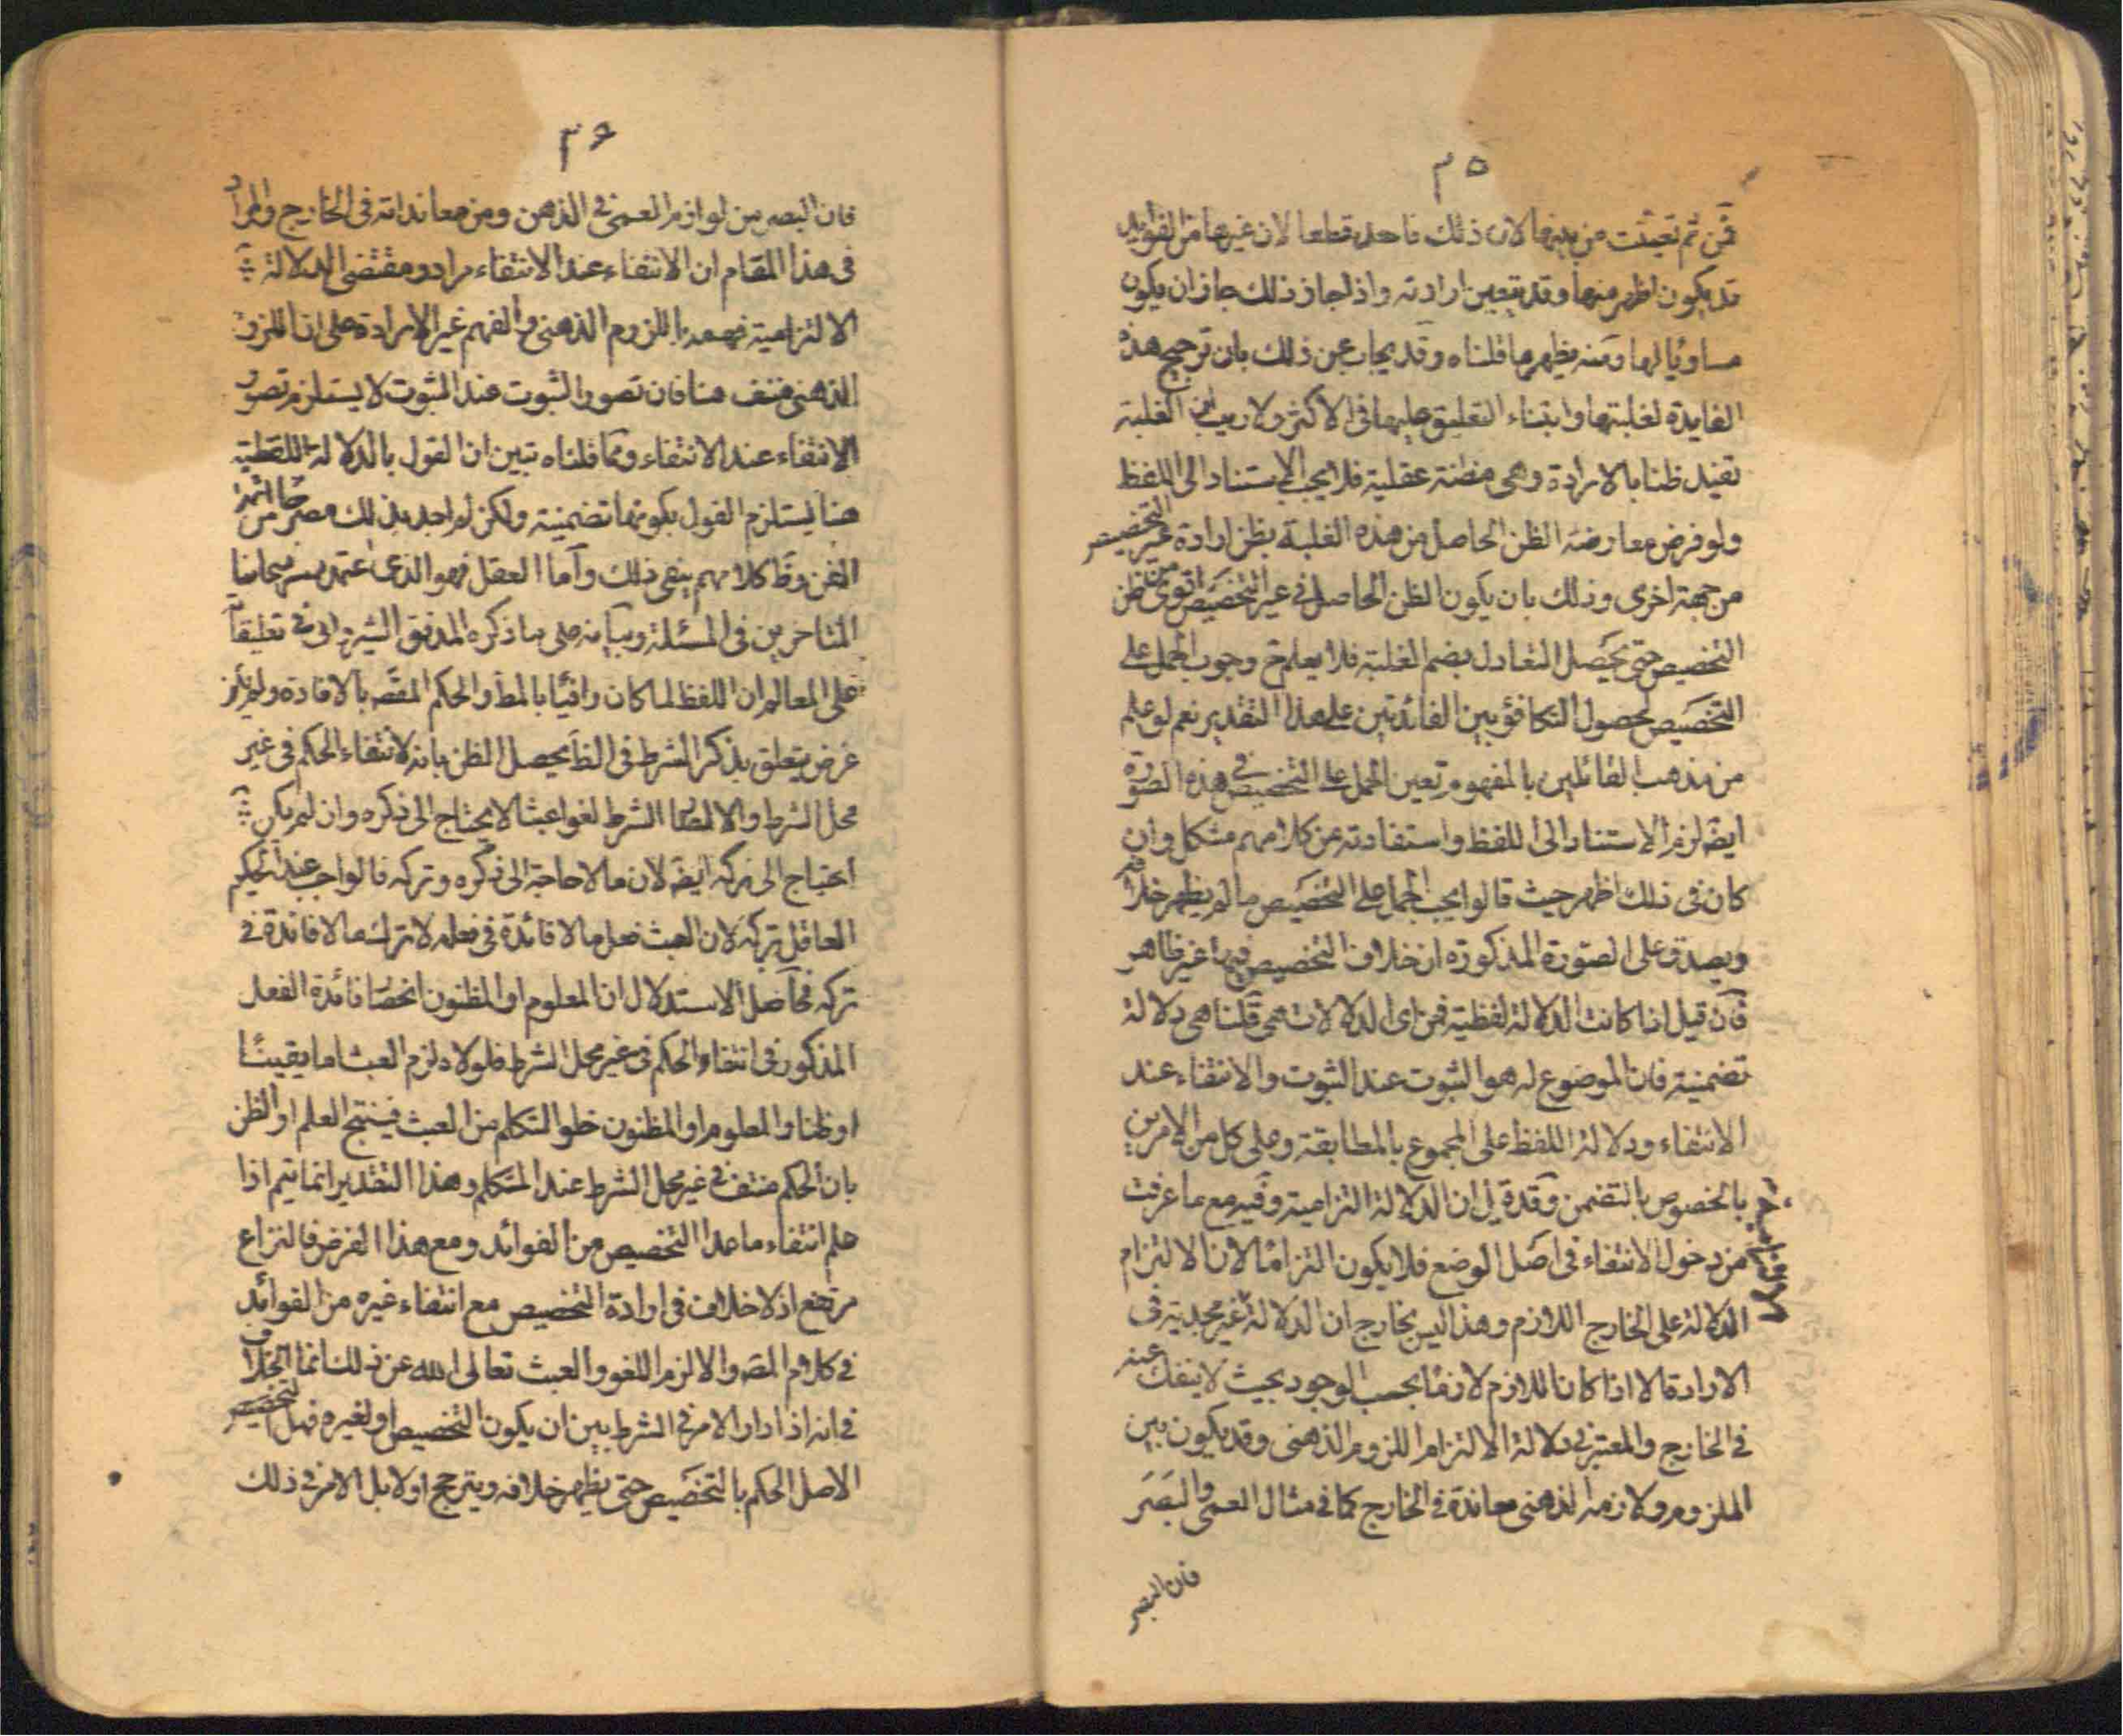 ٣٥
فمن ثم تعينت من بينها لان ذلك فاحد قطعا لان غيرها من الفوايد
قد يكون اظهر منها وقد يتعين ارادته واذا جاز ذلك جاز ان يكون
مساويا لها ومنه يظهر ما قلناه وقد يجاب عن ذلك بان ترجيح هذه
الفايدة لغلبتها وابتناء التعليق عليها فى الاكثر ولا ريب ان الغلبة
تفيد ظنا بالارادة وهى مظنة عقلية فلا يجب الاستناد الى اللفظ
ولو فرض معارضة الظن الحاصل من هذه الغلبة بظن ارادة غير التخصيص
من جهة اخرى وذلك بان يكون الظن الحاصل فى غير التخصيص اقوى من ظن
التخصيص حتى يحصل التعادل بضم الغلبة فلا يعلم ح وجوب الحمل على
التخصيص لحصول التكافؤ بين الفائدتين على هذا التقدير نعم لو علم
من مذهب القائلين بالمفهوم تعين الحمل على التخصيص فى هذه الصورة
ايضا لزم الاستناد الى اللفظ واستفادته من كلامهم مشكل وان
كان فى ذلك اظهر حيث قالوا يجب الحمل على التخصيص ما لم يظهر خلافه
ويصدق على الصورة المذكورة ان خلاف التخصيص فيها غير ظاهر
فان قيل اذا كانت الدلالة لفظية فمن اى الدلالات هى قلنا هى دلالة
تضمنية فان الموضوع له هو الثبوت عند الثبوت والانتفاء عند
الانتفاء ودلالة اللفظ على المجموع بالمطابقة وعلى كل من الامرين
بالخصوص بالتضمن وقد قيل ان الدلالة التزامية وفيه مع ما عرفت
من دخول الانتفاء فى اصل الوضع فلا يكون التزاما لان الالتزام
الدلالة على الخارج اللازم وهذا ليس بخارج ان الدلالة غير مجدية فى
الارادة الا اذا كان اللازم لازما بحسب الوجود بحيث لا ينفك عنه
فى الخارج والمعتبر فى دلالة الالتزام اللزوم الذهنى وقد يكون بين
الملزوم ولازمه الذهنى معاندة فى الخارج كما فى مثال العمى والبصر
فان البصر
٣٦
فان البصر من لوازم العمى فى الذهن ومن معانداته فى الخارج والمراد
فى هذا المقام ان الانتفاء عند الانتفاء مراد ومقتضى الدلالة
الالتزامية فهمه اللزوم الذهنى والفهم غير الارادة على ان اللزوم
الذهنى منتف هنا فان تصور الثبوت عند الثبوت لا يستلزم تصور
الانتفاء عند الانتفاء ومما قلناه تبين ان القول بالدلالة اللفظية
هنا يستلزم القول بكونها تضمنية ولكن لم اجد بذلك مصرحا من ائمة
الفن وظ كلامهم ينفى ذلك واما العقل فهو الذى اعتمده جماعة
المتاخرين فى المسئلة وبيانه على ما ذكره المدقق الشيروانى فى تعليقا
على المعالم ان اللفظ لما كان وافيا بالمط والحكم المقصد بالافادة ولم يكن
غرض يتعلق بذكر الشرط فى الظ يحصل الظن بانه لانتفاء الحكم فى غير
محل الشرط والا لكان الشرط لغوا عبثا لا يحتاج الى ذكره وان لم يكن
احتياج الى تركه ايضا لان ما لا حاجة الى ذكره وتركه فالواجب عند الحكيم
العاقل تركه لان العبث فعل ما لا فائدة فى فعله لا ترك ما لا فائدة فى
تركه فحاصل الاستدلال ان المعلوم او المظنون انحصار فائدة الفعل
المذكور فى انتفاء الحكم فى غير محل الشرط فلولاه لزم العبث اما يقينا
او ظنا والمعلوم او المظنون خلو المتكلم من العبث فينتج العلم او الظن
بان الحكم منتف فى غير محل الشرط عند المتكلم وهذا التقدير انما يتم اذا
علم انتفاء ما عدا التخصيص من الفوائد ومع هذا الفرض فالنزاع
مرتفع اذ لا خلاف فى ارادة التخصيص مع انتفاء غيره من الفوائد
فى كلامه تعالى والا لزم اللغو والعبث تعالى الله عن ذلك انما الخلاف
فى انه اذا دار الامر فى الشرط بين ان يكون التخصيص او لغيره فهل التخصيص
الاصل الحكم بالتخصيص حتى يظهر خلافه ويترجح اولا بل الامر فى ذلك